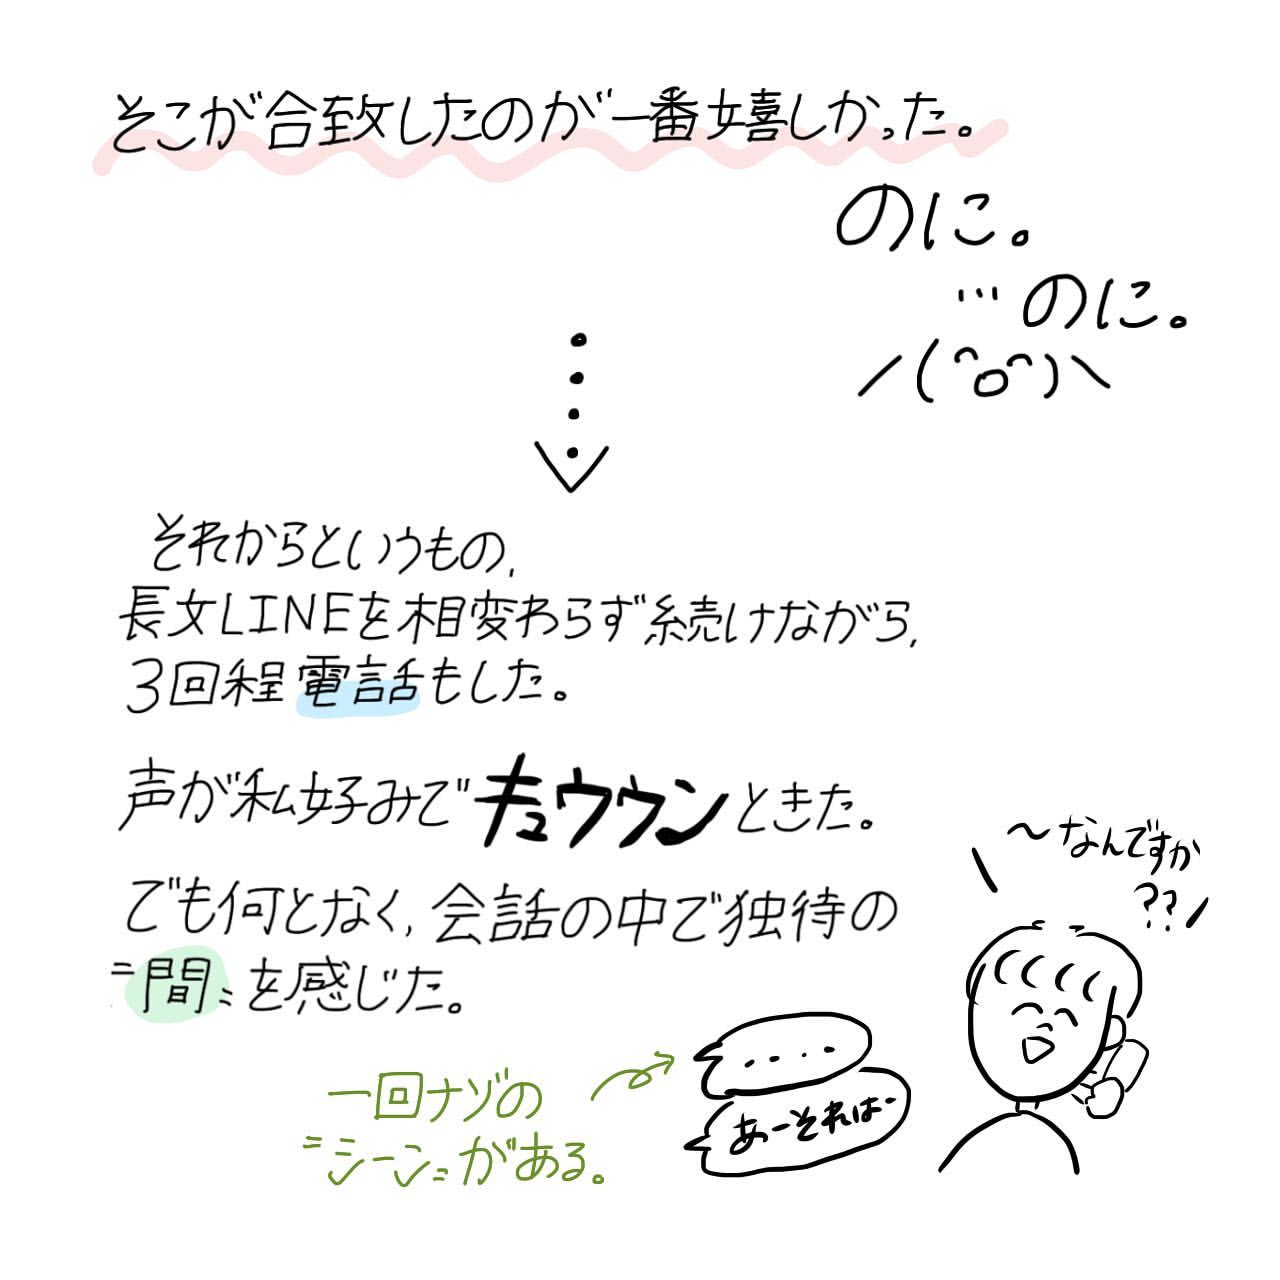 そこが合致したのが一番嬉しかった。
のに。
…のに。
／(^o^)＼
それからというもの、
長文LINEを相変わらず続けながら、
3回程電話もした。
声が私好みでキュウウンときた。
でも何となく、会話の中で独特の
〝間〟を感じた。
〜なんですか
??
一回ナゾの
〝シーン〟がある。
....
あーそれは…